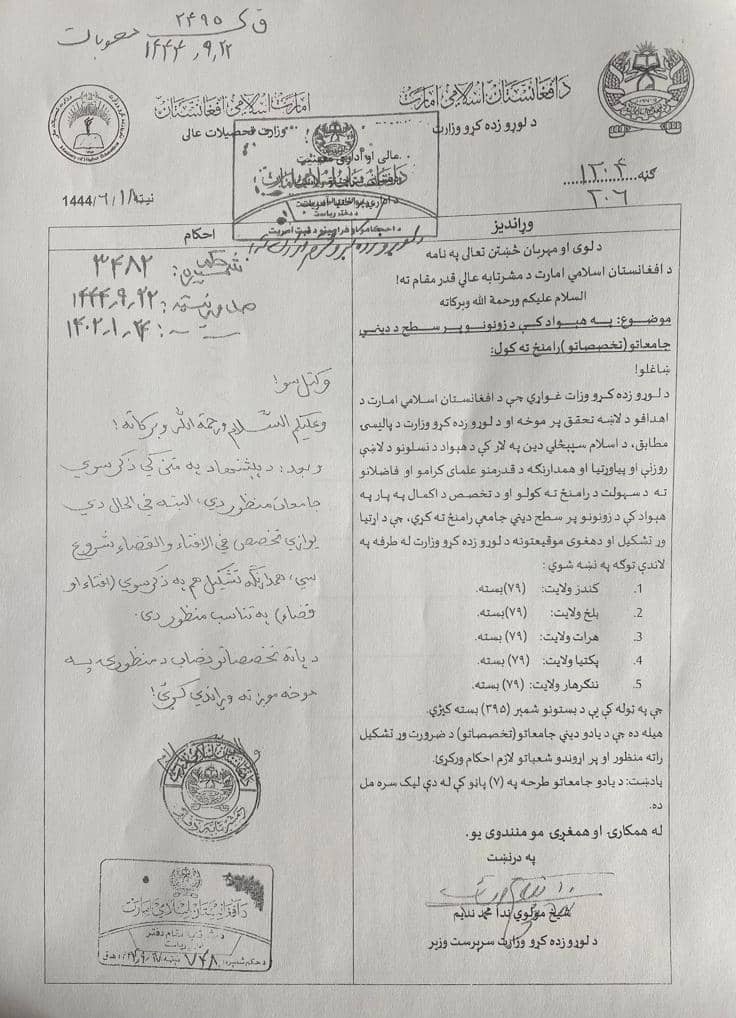 ق ک ۲۴۹۵
۱۴۴۴٫۹٫۲۲
مصوبات
د افغانستان اسلامي امارت
امارت اسلامی افغانستان
د لوړو زده کړو وزارت
وزارت تحصیلات عالی
Ministry of Higher Education
عالی او اداري معینیت
ګڼه ۱۲۰۴
۲۰۶
نېټه ۱۴۴۴/۶/۱۸
وړاندیز
د لوی او مهربان څښتن تعالی په نامه
د افغانستان اسلامي امارت د مشرتابه عالي قدر مقام ته!
السلام علیکم ورحمة الله وبرکاته
موضوع: په هېواد کې د زونونو پر سطح د دیني
جامعاتو (تخصصاتو) رامنځ ته کول:
ښاغلو!
د لوړو زده کړو وزات غواړي چې د افغانستان اسلامي امارت د
اهدافو د لاښه تحقق پر موخه او د لوړو زده کړو وزارت د پالیسی
مطابق، د اسلام سپېڅلي دین په لار کې د هېواد د نسلونو د لاښې
روزنې او پیاوړتیا او همدارنګه د قدرمنو علمای کرامو او فاضلانو
ته د سهولت د رامنځ ته کولو او د تخصص د اکمال په پار په
هېواد کې د زونونو پر سطح دیني جامعې رامنځ ته کړي، چې د اړتیا
وړ تشکیل او دهغوی موقیعتونه د لوړو زده کړو وزارت له طرفه په
لاندې توګه په نښه شوي:
1. کندز ولایت: (۷۹) بسته.
2. بلخ ولایت: (۷۹) بسته.
3. هرات ولایت: (۷۹) بسته.
4. پکتیا ولایت: (۷۹) بسته.
5. ننګرهار ولایت: (۷۹) بسته.
چې په ټوله کې یې د بستونو شمېر (۳۹۵) بسته کیږي.
هیله ده چې د یادو دیني جامعاتو (تخصصاتو) د ضرورت وړ تشکیل
راته منظور او پر اړوندو شعباتو لازم احکام ورکړئ.
یادښت: د یادو جامعاتو طرحه په (۷) پاڼو کې له دې لیک سره مل
ده.
له همکارۍ او همغږۍ مو مننډوی یو.
په درنښت
شیخ مولوي ندا محمد ندیم
د لوړو زده کړو وزارت سرپرست وزیر
احکام
حکم
شمېره: ۳۴۸۲
۱۴۴۴٫۹٫۲۲
۱۴۰۲٫۱٫۲۴
وکتل سو!
وعلیکم السلام ورحمة الله وبرکاته!
وبعد: د پېشنهاد په متن کي ذکر سوي
جامعات منظور دي، البته في الحال دي
یوازي تخصص في الافتاء والقضاء شروع
سي، همدارنګه تشکیل هم په ذکر سوي (افتاء او
قضاء) په تناسب منظور دی.
د پاته تخصصاتو نصاب د منظورۍ په
موخه موږ ته وړاندي کړئ!
د افغانستان اسلامي امارت
د افغانستان اسلامي امارت
د مشرتابه مقام دفتر
ریاست
د حکم شمېره: ۷۴۸